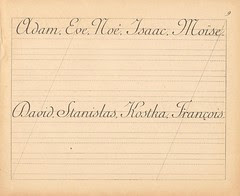 Adam, Eve, Noé, Isaac, Moïse.
David, Stanislas, Kostka, François.